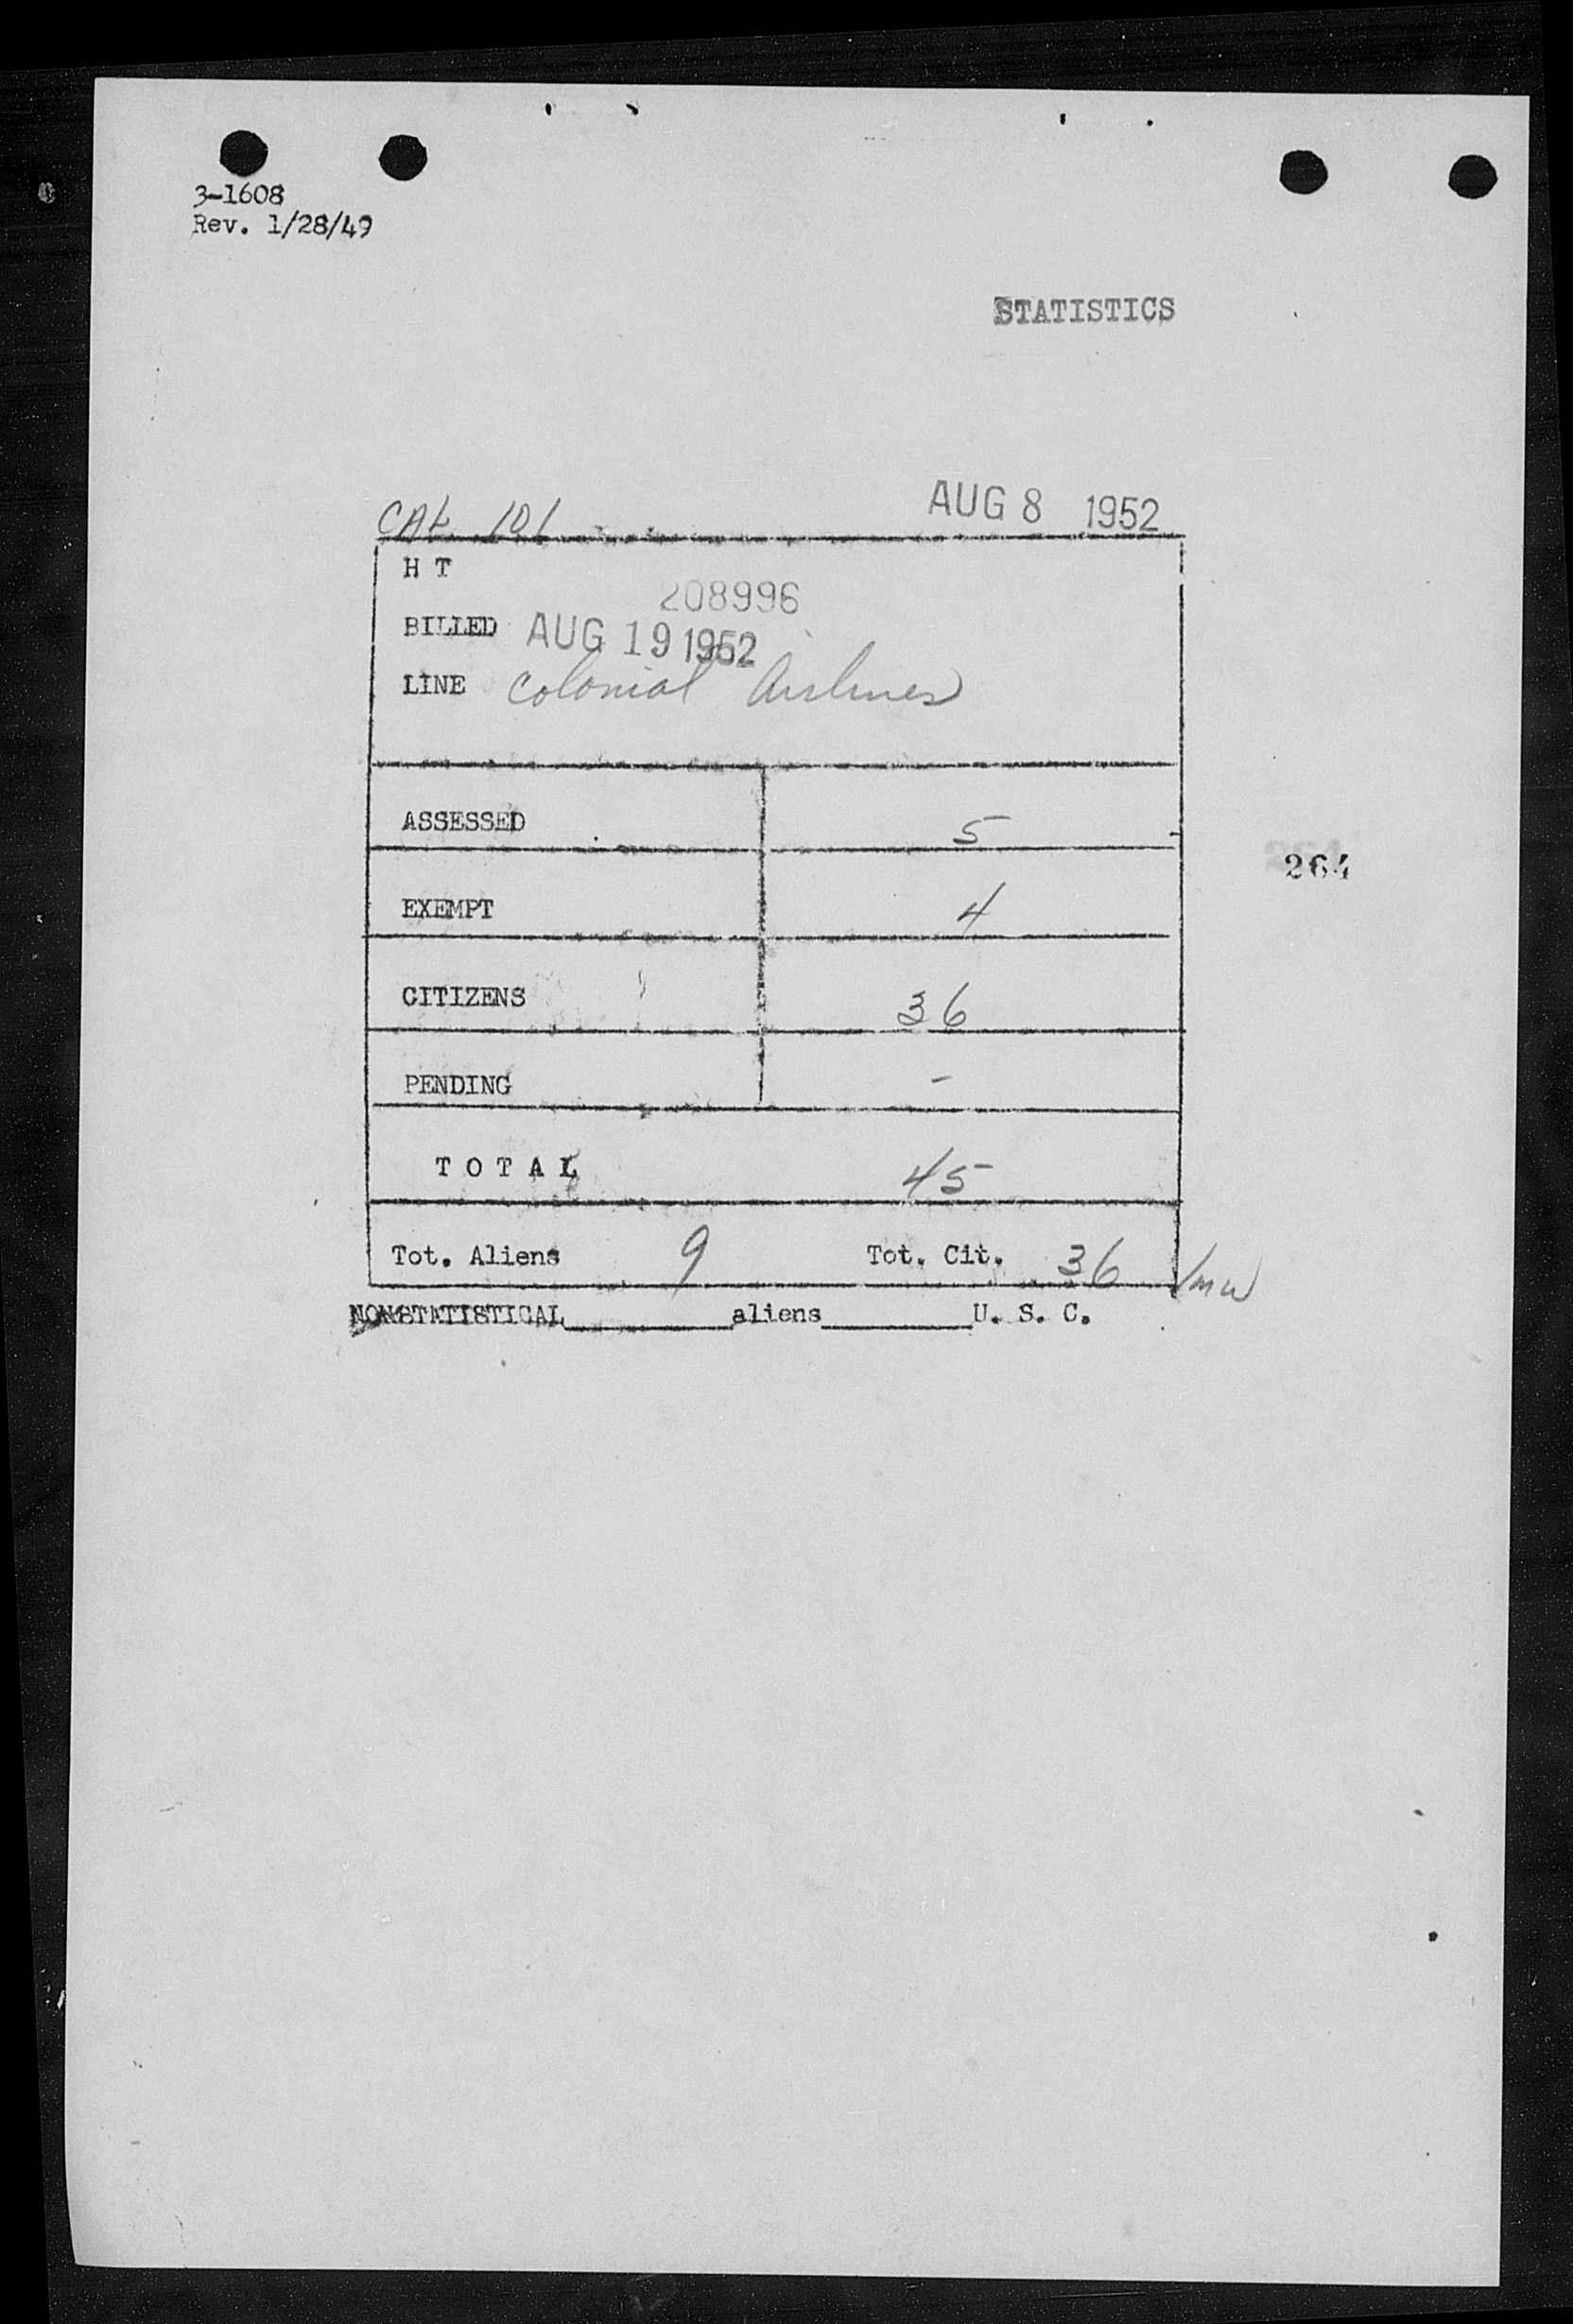 3-1608
Rev. 1/28/49
STATISTICS
CAL 101 AUG 8 1952
H T
208996
BILLED AUG 19 1952
LINE Colonial Airlines
ASSESSED 5
264
EXEMPT 4
CITIZENS 36
PENDING -
T O T A L 45
Tot. Aliens 9 Tot. Cit. 36
NONSTATISTICAL________aliens________U. S. C.